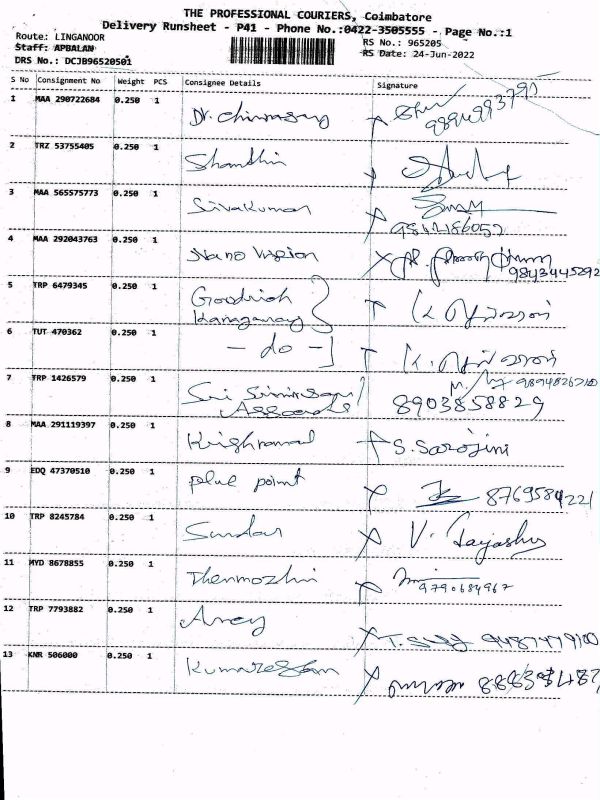 THE PROFESSIONAL COURIERS, Coimbatore
Delivery Runsheet - P41 - Phone No.:0422-3505555 - Page No.:1
Route: LINGANOOR
RS No.: 965205
Staff: APBALAN
RS Date: 24-Jun-2022
DRS No.: DCJB96520501
S No Consignment No Weight PCS Consignee Details Signature
1 MAA 290722684 0.250 1 Dr. Chinnasamy
2 TRZ 53755405 0.250 1 Shanthin
3 MAA 565575773 0.250 1 Sivakumar
9842186052
4 MAA 292043763 0.250 1 Nano Vision
9843445292
5 TRP 6479345 0.250 1 Goodrich
Kanagaraj
6 TUT 470362 0.250 1 - do -
7 TRP 1426579 0.250 1 Sri Srinivasan
Associates 8903858829
8 MAA 291119397 0.250 1 Krishnamal S. Sarojini
9 EDQ 47370510 0.250 1 plue point 8769584221
10 TRP 8245784 0.250 1 Sundar V. Jayashu
11 MYD 8678855 0.250 1 Thenmozhi
9790684967
12 TRP 7793882 0.250 1
9487479100
13 KNR 506000 0.250 1 Kumaressan